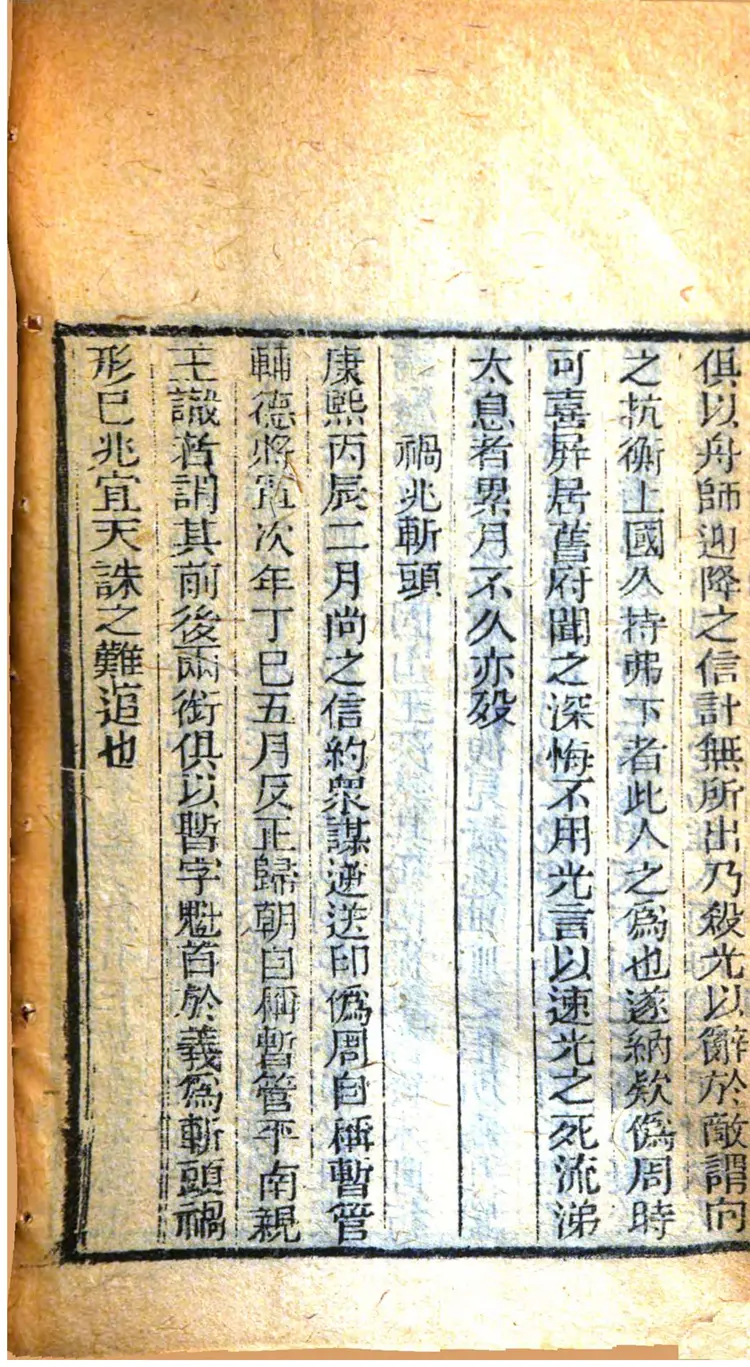 俱以舟師迎降之信計無所出乃殺光以謝於敵謂向
之抗衡上國久持弗下者此人之爲也遂納欵僞周時
可喜屛居舊府聞之深悔不用光言以速光之死流涕
太息者累月不久亦歿
禍兆斬頭
康熙丙辰二月尚之信約衆謀逆送印僞周自稱暫管
輔德將軍次年丁巳五月反正歸朝自稱暫管平南親
王識者謂其前後兩銜俱以暫字魁首於義爲斬頭禍
形已兆宜天誅之難逭也